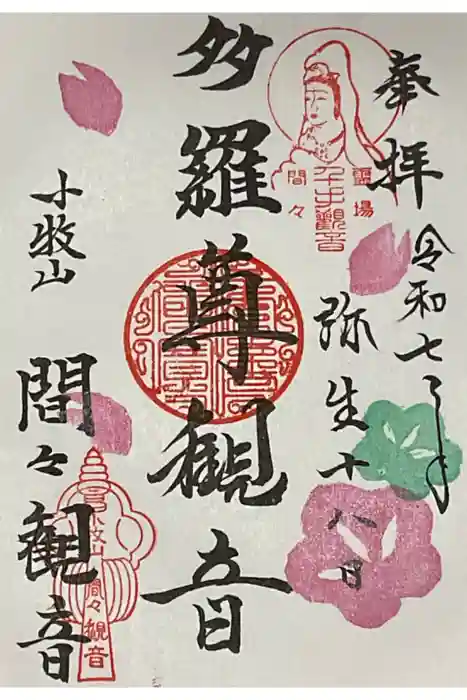 奉拝
令和七年
弥生十八日
多羅尊観音
小牧山
間々観音
霊場
間々
千手観音
小牧山
間々観音